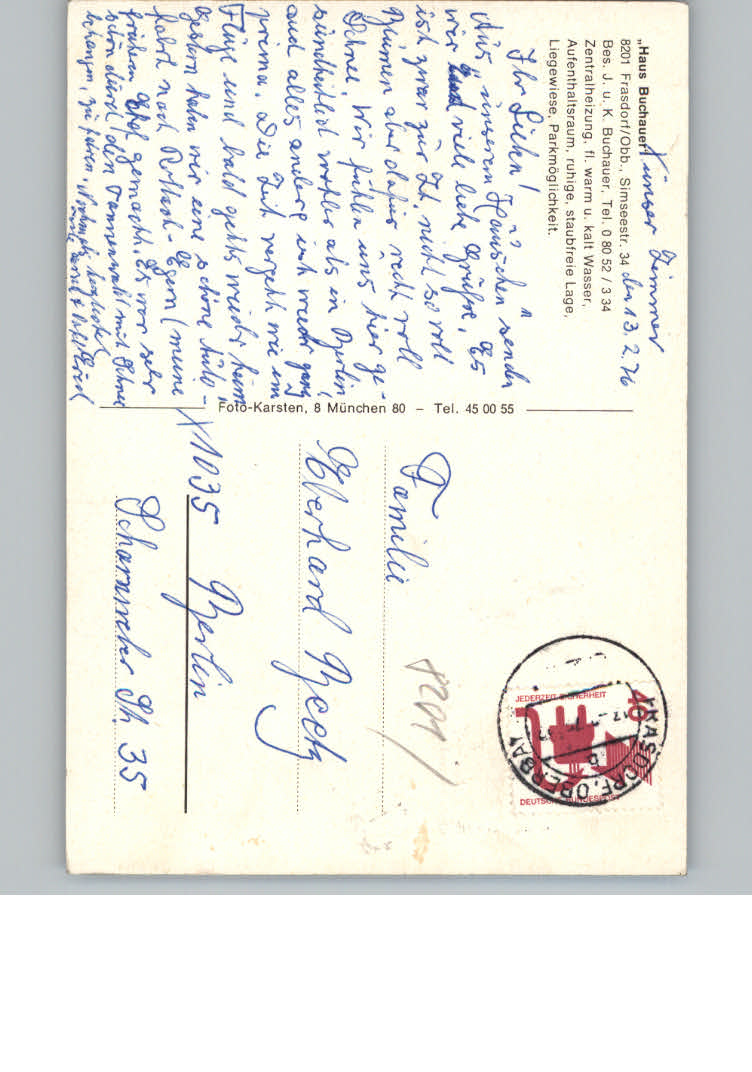 „Haus Buchauer"
8201 Frasdorf/Obb., Simseestr. 34
Bes. J. u. K. Buchauer, Tel. 0 80 52 / 3 34
Zentralheizung, fl. warm u. kalt Wasser,
Aufenthaltsraum, ruhige, staubfreie Lage,
Liegewiese, Parkmöglichkeit.
X unser Zimmer
den 13.2.76
Ihr Lieben!
Aus "unserem Häuschen" senden
wir viele liebe Grüße. Es
ist zwar zur Zt. nicht so voll
Blumen aber dafür recht voll
Schnee. Wir fühlen uns hier ge-
sundheitlich wohler als in Berlin,
und alles andere ist wieder ganz
prima. Die Zeit vergeht wie im
Fluge und bald gehts wieder heim.
Gestern haben wir eine schöne Auto-
fahrt nach Rottach-Egern (meine
frühere gemacht. Es war sehr
schön durch den Tannenwald mit Schnee
behangen, zu fahren. Nochmals herzlichst
Foto-Karsten, 8 München 80 – Tel. 45 00 55
Familie
Eberhard
X1035 Berlin
Scharnweber Str. 35
8201/
JEDERZEIT SICHERHEIT
40
DEUTSCHE BUNDESPOST
FRASDORF, OBERBAY